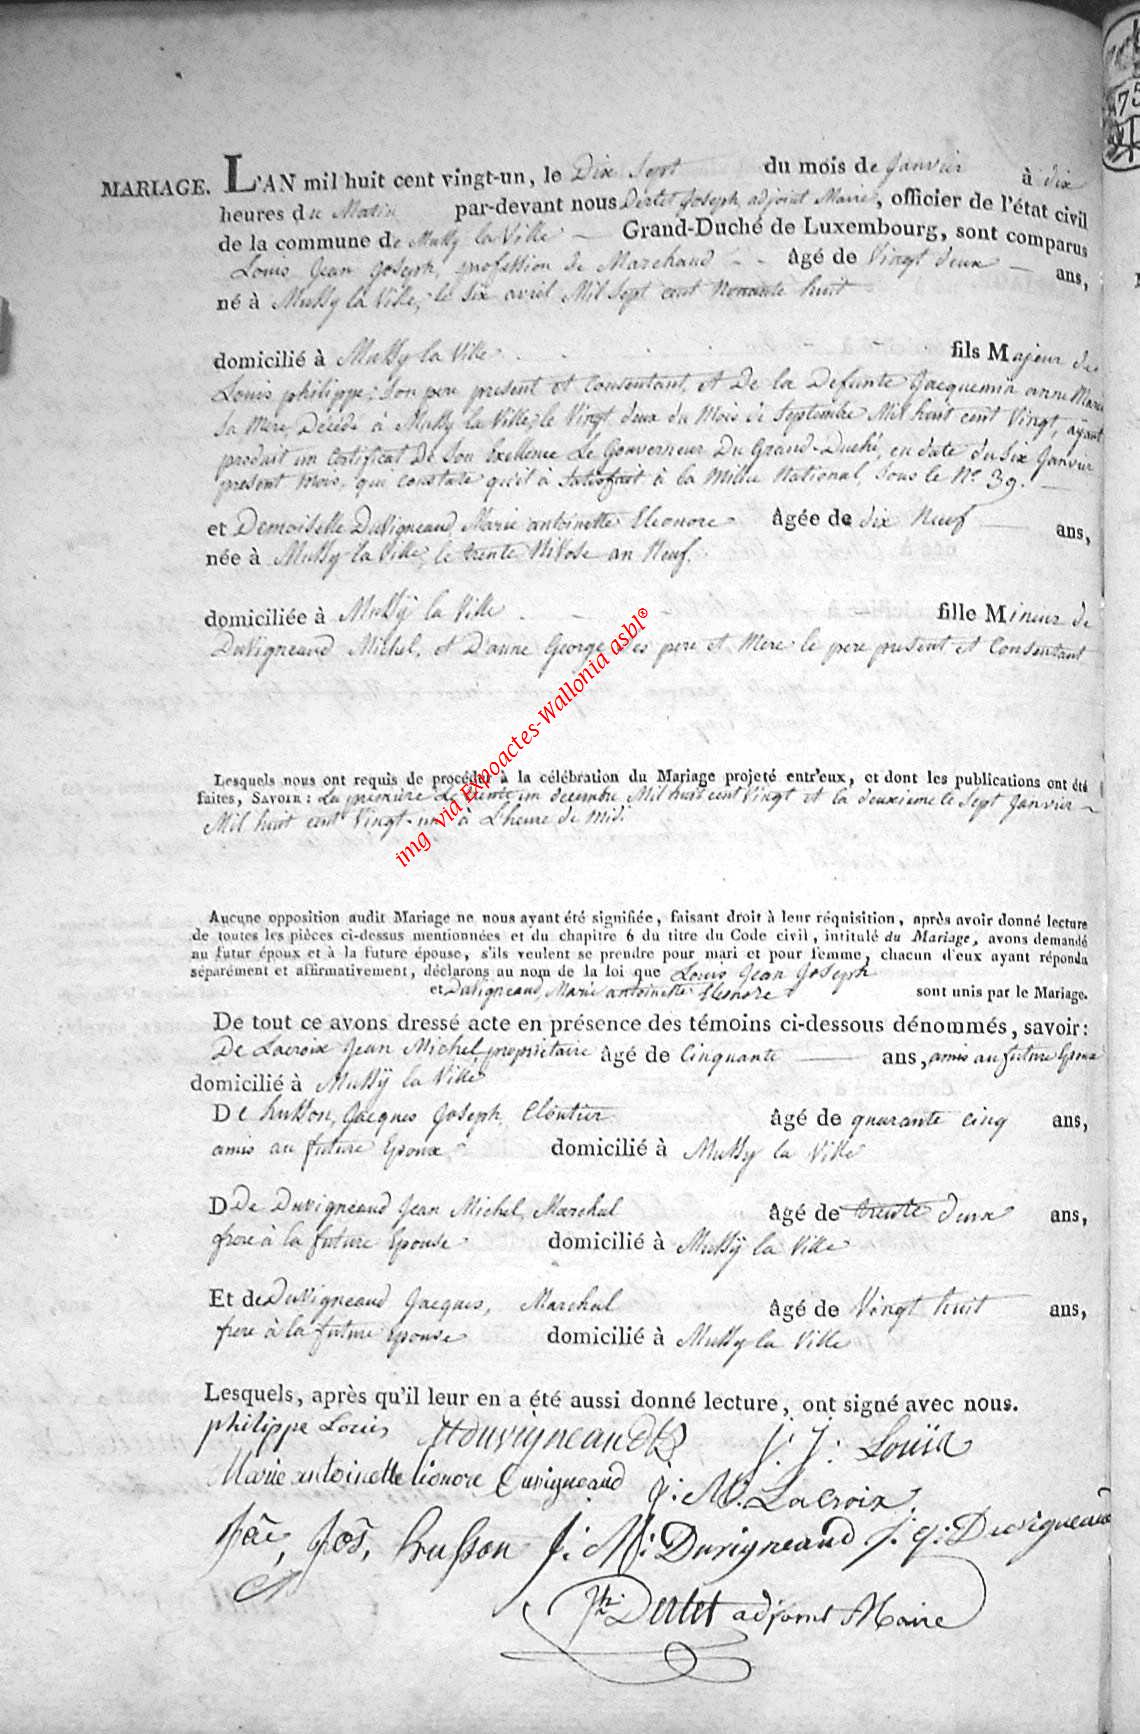 MARIAGE. L'AN mil huit cent vingt-un, le Dix Sept du mois de Janvier à dix
heures du Matin par-devant nous Dertet Joseph, adjoint Maire, officier de l'état civil
de la commune de Mussy la Ville Grand-Duché de Luxembourg, sont comparus
Louis Jean Joseph, profession de Marchand âgé de Vingt deux ans,
né à Mussy la Ville, le Six avril Mil Sept cent Nonante huit
domicilié à Mussy la Ville fils Majeur de
Louis philippe, Son pere present et Consentant, et De la Defunte Jacquemin anne Marie
Sa Mere Decédé à Mussy la Ville, le Vingt deux du Mois de Septembre Mil huit cent Vingt, ayant
produit un Certificat De Son Exellence Le Gouverneur Du Grand-Duché, en date du Six Janvier
present mois, qui constate qu'il à Satisfait à la Milice National, Sous le No 39.
et Demoiselle Duvigneaud, Marie antoinette Eleonore âgée de dix Neuf ans,
née à Mussy la Ville, le trente Nivose an Neuf.
domiciliée à Mussÿ la Ville fille Mineur de
Duvigneaud Michel, et D'anne George Ses pere et Mere le pere present et Consentant
Lesquels nous ont requis de procéder à la célébration du Mariage projeté entr'eux, et dont les publications ont été
faites, SAVOIR: La premiere Le trente un decembre Mil huit cent Vingt et la deuxieme le Sept Janvier
Mil huit cent Vingt-un à L'heure de Midi.
Aucune opposition audit Mariage ne nous ayant été signifiée, faisant droit à leur réquisition, après avoir donné lecture
de toutes les pièces ci-dessus mentionnées et du chapitre 6 du titre du Code civil, intitulé du Mariage, avons demandé
au futur époux et à la future épouse, s'ils veulent se prendre pour mari et pour femme, chacun d'eux ayant répondu
séparément et affirmativement, déclarons au nom de la loi que Louis Jean Joseph
et Duvigneaud, Marie antoinette Eleonore sont unis par le Mariage.
De tout ce avons dressé acte en présence des témoins ci-dessous dénommés, savoir:
De Lacroix Jean Michel, propriétaire âgé de Cinquante ans, amis au future Epoux
domicilié à Mussÿ la Ville
De husson, Jacques Joseph, Cloutier âgé de quarante cinq ans,
amis au future Epoux domicilié à Mussy la Ville
D De Duvigneaud Jean Michel, Marchal âgé de trente deux ans,
frere à la future Epouse domicilié à Mussÿ la Ville
Et de Duvigneaud Jacques, Marchal âgé de Vingt huit ans,
frere à la future Epouse domicilié à Mussy la Ville
Lesquels, après qu'il leur en a été aussi donné lecture, ont signé avec nous.
philippe Louis Duvigneaud J: J: Louis
Marie antoinette lionore Duvigneaud j: M: Lacroix
Jac, Jos, husson J: M: Duvigneaud j. j: Duvigneaud
Jh Dertet adjoint Maire
img via Expoactes-Wallonia asbl®
75